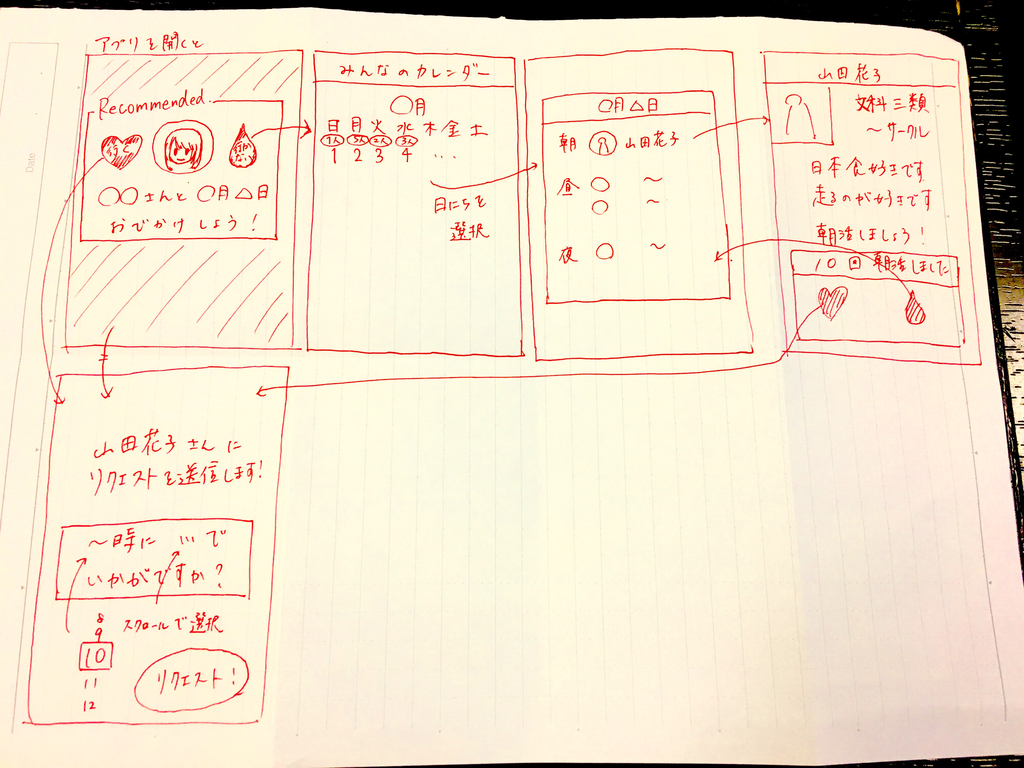 Date
アプリを開くと
Recommended
行く
行かない
○○さんと ○月△日
おでかけしよう!
みんなのカレンダー
○月
日 月 火 水 木 金 土
1人 3人 2人 3人
1 2 3 4 ...
日にちを
選択
○月△日
朝 山田花子
昼 ○ 〜
○ 〜
夜 ○ 〜
山田花子
文科三類
〜サークル
日本食好きです
走るのが好きです
朝活しましょう!
10回朝活しました
山田花子さんに
リクエストを送信します!
〜時に ...で
いかがですか?
8
9
10
11
12
スクロールで選択
リクエスト!